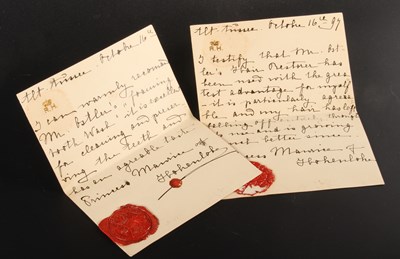 Alt Aussee. Octobre 16th
I can warmly recomend
Mr. Botler's "foaming
Tooth Wash": it is excellent
for cleaning and preser-
ving the teeth and
has an agreable taste.
Princess Maurice of
Hohenlohe
Alt Aussee. Octobre 16th 97
I testify that Mr. Bot-
ler's Hair Restorer has
been used with the grea
test advantage for myself
it is particularly agrea-
ble and my hair has left
falling off
and is growing
Maurice of
Hohenlohe